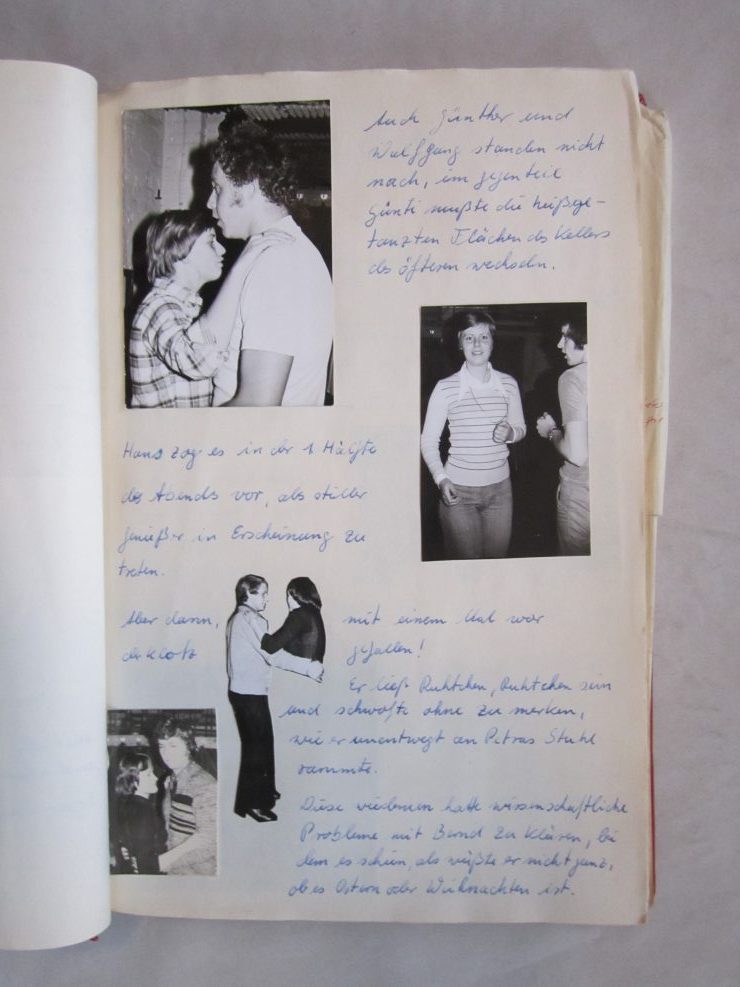 Auch Günther und
Wolfgang standen nicht
nach, im gegenteil
Günti mußte die heißge-
tanzten Flächen des Kellers
des öfteren wechseln.
Hans zog es in der 1 Hälfte
des Abends vor, als stiller
genießer in Erscheinung zu
treten.
Aber dann, mit einem Mal war
der Klotz gefallen!
Er ließ Ruhtchen, Ruhtchen sein
und schwofte ohne zu merken,
wie er unentwegt an Petras Stuhl
rammte.
Diese wiederum hatte wissenschaftliche
Probleme mit Bernd zu klären, bei
dem es schien, als wüßte er nicht ganz,
ob es Ostern oder Weihnachten ist.